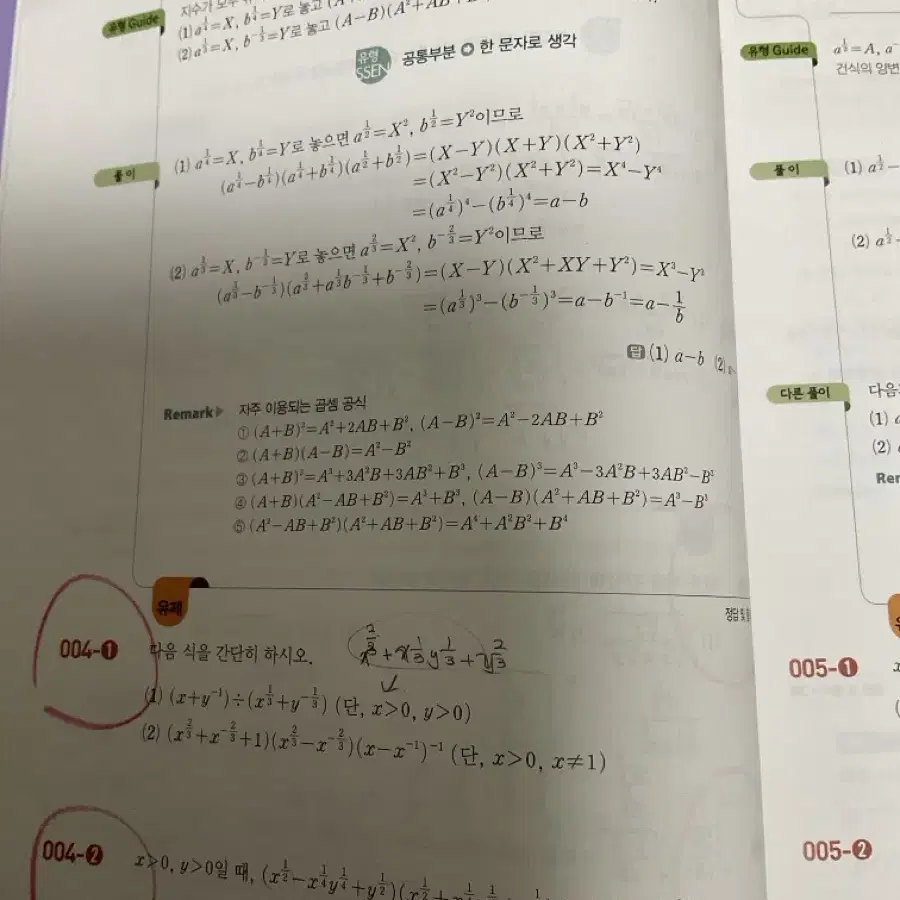 유형 Guide
(1) a^{1/4}=X, b^{1/4}=Y로 놓고
(2) a^{1/3}=X, b^{-1/3}=Y로 놓고 (A-B)(A²+AB
유형 SSEN 공통부분 ➔ 한 문자로 생각
풀이
(1) a^{1/4}=X, b^{1/4}=Y로 놓으면 a^{1/2}=X², b^{1/2}=Y²이므로
(a^{1/4}-b^{1/4})(a^{1/4}+b^{1/4})(a^{1/2}+b^{1/2})=(X-Y)(X+Y)(X²+Y²)
=(X²-Y²)(X²+Y²)=X⁴-Y⁴
=(a^{1/4})⁴-(b^{1/4})⁴=a-b
(2) a^{1/3}=X, b^{-1/3}=Y로 놓으면 a^{2/3}=X², b^{-2/3}=Y²이므로
(a^{1/3}-b^{-1/3})(a^{2/3}+a^{1/3}b^{-1/3}+b^{-2/3})=(X-Y)(X²+XY+Y²)=X³-Y³
=(a^{1/3})³-(b^{-1/3})³=a-b^{-1}=a-1/b
답 (1) a-b (2)
Remark▶ 자주 이용되는 곱셈 공식
① (A+B)²=A²+2AB+B², (A-B)²=A²-2AB+B²
② (A+B)(A-B)=A²-B²
③ (A+B)³=A³+3A²B+3AB²+B³, (A-B)³=A³-3A²B+3AB²-B³
④ (A+B)(A²-AB+B²)=A³+B³, (A-B)(A²+AB+B²)=A³-B³
⑤ (A²-AB+B²)(A²+AB+B²)=A⁴+A²B²+B⁴
유제
정답 및
004-❶ 다음 식을 간단히 하시오.
x^{2/3}+x^{1/3}y^{1/3}+y^{2/3}
(1) (x+y^{-1})÷(x^{1/3}+y^{-1/3}) (단, x>0, y>0)
(2) (x^{2/3}+x^{-2/3}+1)(x^{2/3}-x^{-2/3})(x-x^{-1})^{-1} (단, x>0, x≠1)
004-❷ x>0, y>0일 때, (x^{1/2}-x^{1/4}y^{1/4}+y^{1/2})(x^{1/2}
유형 Guide
a^{1/2}=A, a
건식의 양변
풀이
(1) a^{1/2}-
(2) a^{1/2}
다른 풀이
다음
(1)
(2)
Rem
005-❶
005-❷